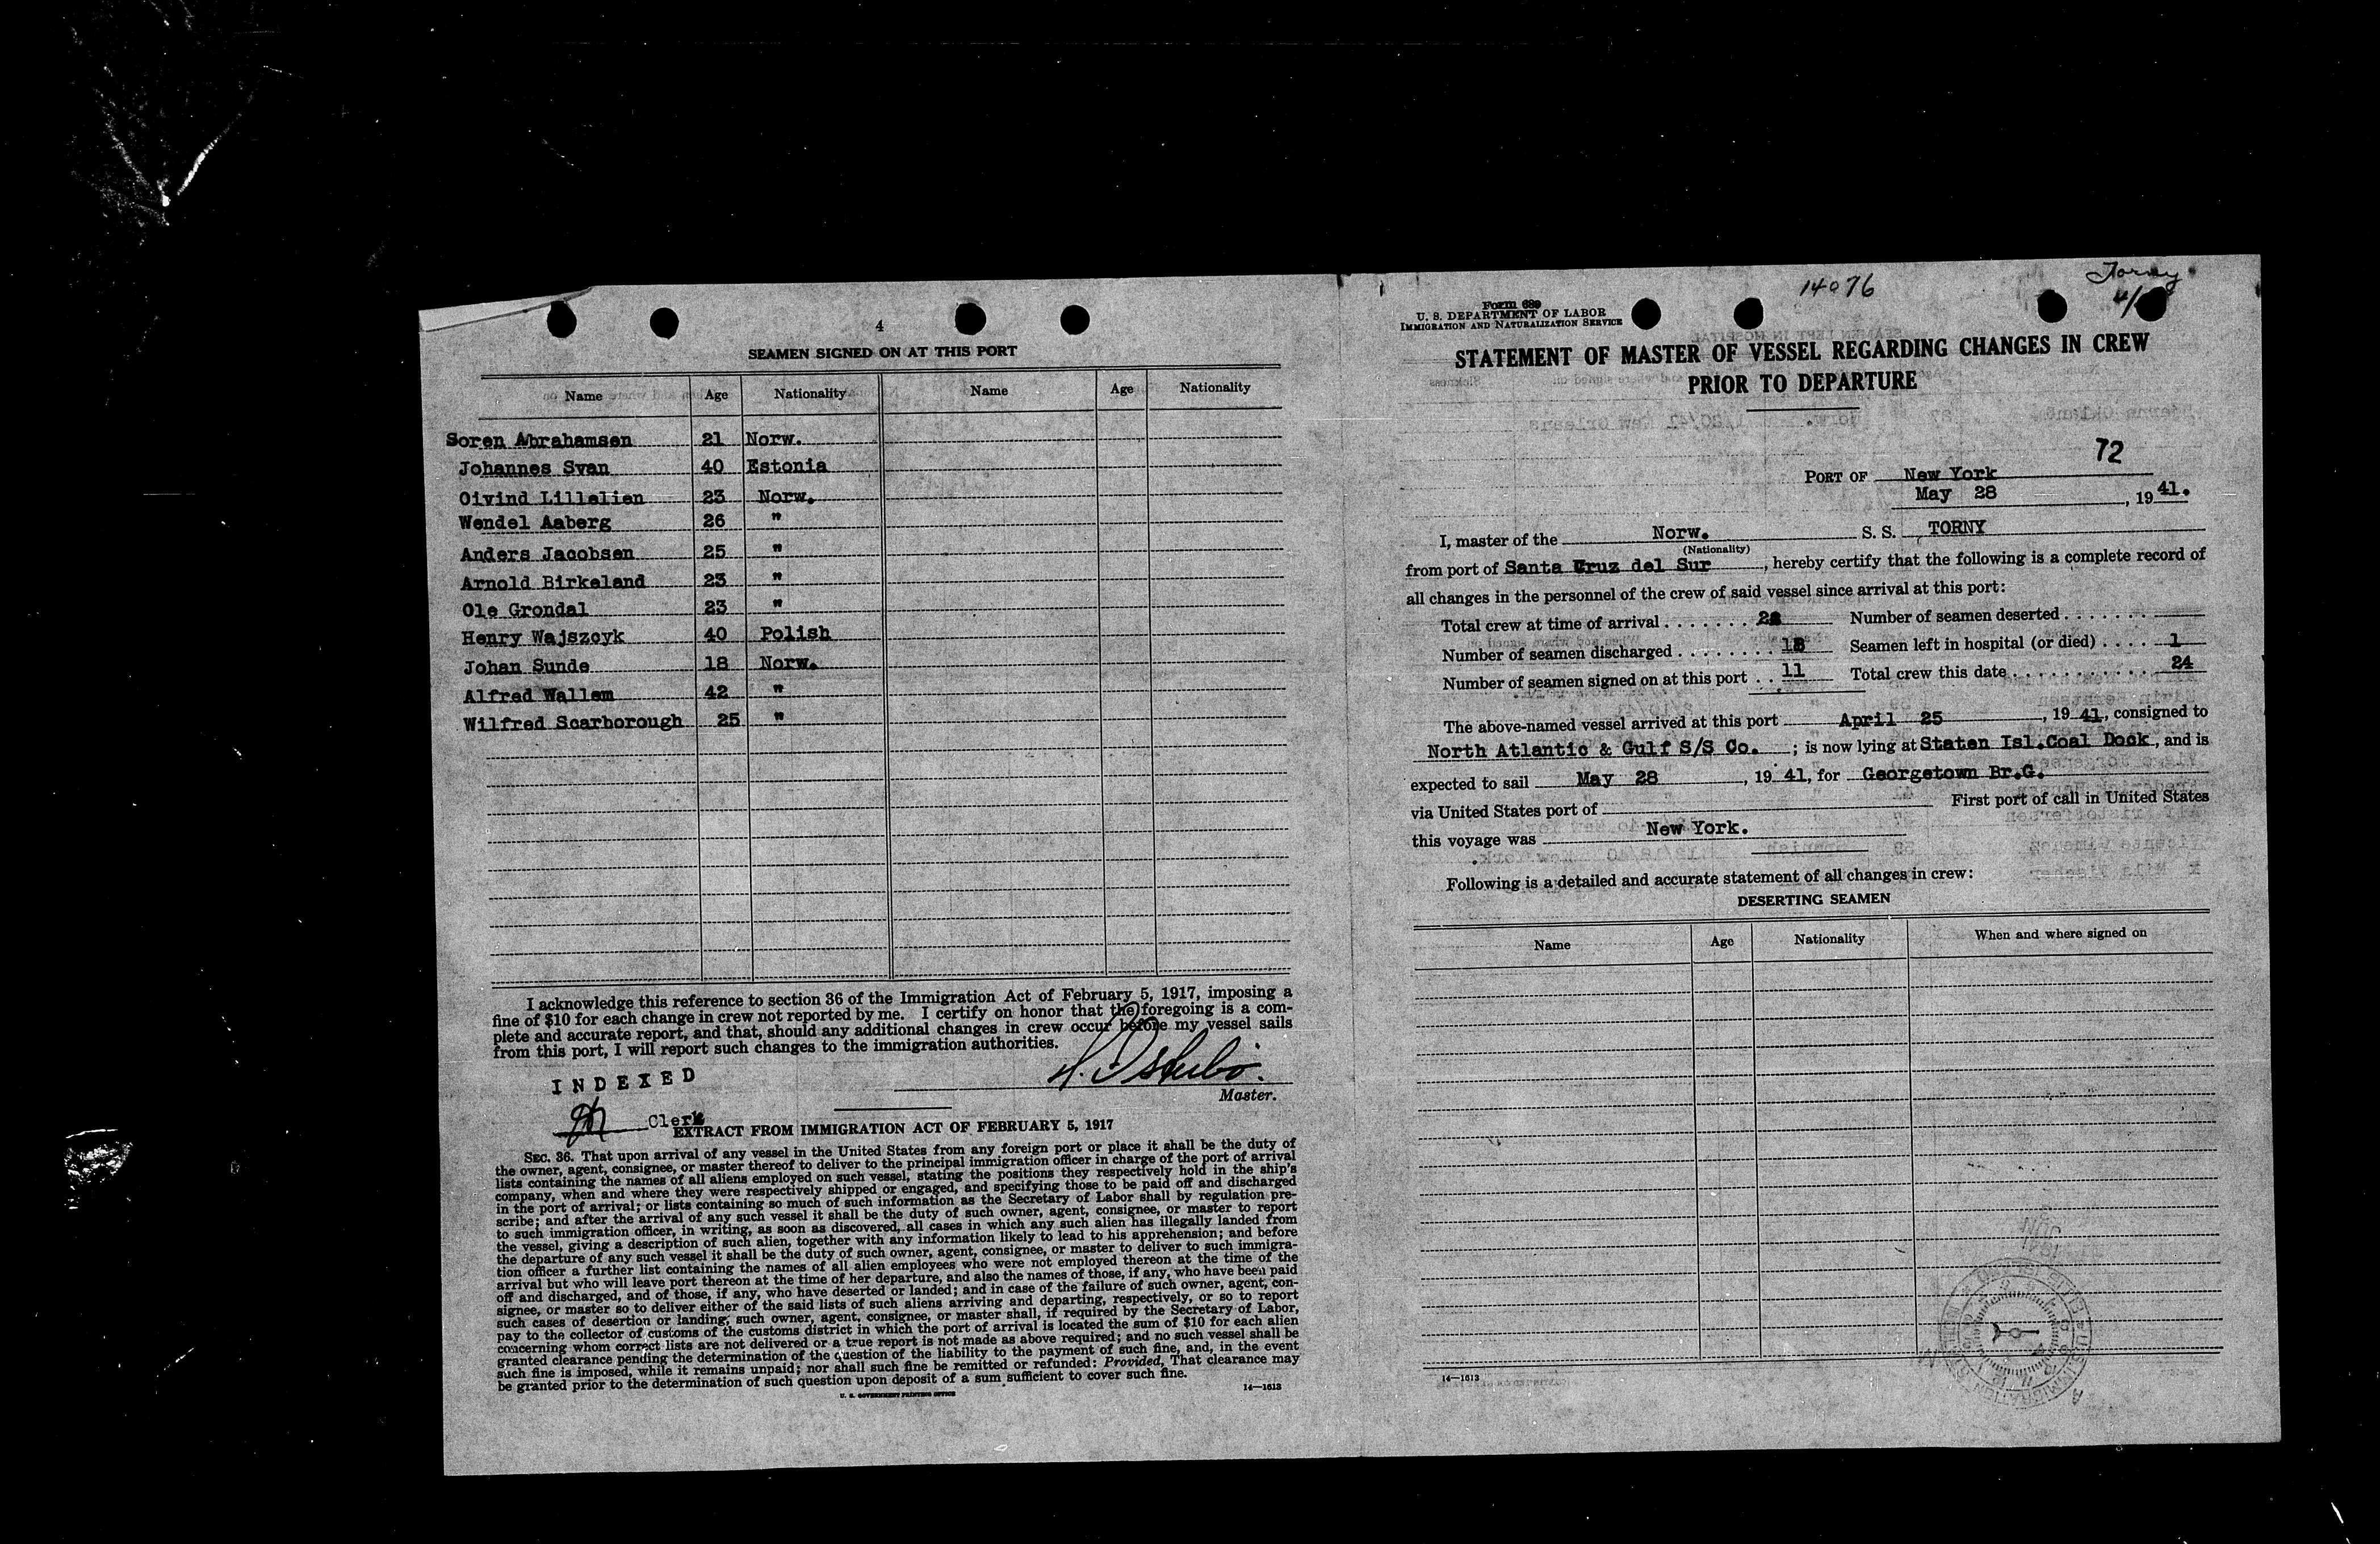 4
SEAMEN SIGNED ON AT THIS PORT
Name Age Nationality Name Age Nationality
Soren Abrahamsen 21 Norw.
Johannes Svan 40 Estonia
Oivind Lillelien 23 Norw.
Wendel Aaberg 26 "
Anders Jacobsen 25 "
Arnold Birkeland 23 "
Ole Grondal 23 "
Henry Wajszcyk 40 Polish
Johan Sunde 18 Norw.
Alfred Wallem 42 "
Wilfred Scarborough 25 "
I acknowledge this reference to section 36 of the Immigration Act of February 5, 1917, imposing a
fine of $10 for each change in crew not reported by me. I certify on honor that the foregoing is a com-
plete and accurate report, and that, should any additional changes in crew occur before my vessel sails
from this port, I will report such changes to the immigration authorities.
INDEXED
Master.
Clerk
EXTRACT FROM IMMIGRATION ACT OF FEBRUARY 5, 1917
SEC. 36. That upon arrival of any vessel in the United States from any foreign port or place it shall be the duty of
the owner, agent, consignee, or master thereof to deliver to the principal immigration officer in charge of the port of arrival
lists containing the names of all aliens employed on such vessel, stating the positions they respectively hold in the ship's
company, when and where they were respectively shipped or engaged, and specifying those to be paid off and discharged
in the port of arrival; or lists containing so much of such information as the Secretary of Labor shall by regulation pre-
scribe; and after the arrival of any such vessel it shall be the duty of such owner, agent, consignee, or master to report
to such immigration officer, in writing, as soon as discovered, all cases in which any such alien has illegally landed from
the vessel, giving a description of such alien, together with any information likely to lead to his apprehension; and before
the departure of any such vessel it shall be the duty of such owner, agent, consignee, or master to deliver to such immigra-
tion officer a further list containing the names of all alien employees who were not employed thereon at the time of the
arrival but who will leave port thereon at the time of her departure, and also the names of those, if any, who have been paid
off and discharged, and of those, if any, who have deserted or landed; and in case of the failure of such owner, agent, con-
signee, or master so to deliver either of the said lists of such aliens arriving and departing, respectively, or so to report
such cases of desertion or landing, such owner, agent, consignee, or master shall, if required by the Secretary of Labor,
pay to the collector of customs of the customs district in which the port of arrival is located the sum of $10 for each alien
concerning whom correct lists are not delivered or a true report is not made as above required; and no such vessel shall be
granted clearance pending the determination of the question of the liability to the payment of such fine, and, in the event
such fine is imposed, while it remains unpaid; nor shall such fine be remitted or refunded: Provided, That clearance may
be granted prior to the determination of such question upon deposit of a sum sufficient to cover such fine.
U. S. GOVERNMENT PRINTING OFFICE 14—1613
14076
Torny
Form 689
U. S. DEPARTMENT OF LABOR
IMMIGRATION AND NATURALIZATION SERVICE
STATEMENT OF MASTER OF VESSEL REGARDING CHANGES IN CREW
PRIOR TO DEPARTURE
72
PORT OF New York
May 28, 1941.
I, master of the Norw. S. S. TORNY
(Nationality)
from port of Santa Cruz del Sur, hereby certify that the following is a complete record of
all changes in the personnel of the crew of said vessel since arrival at this port:
Total crew at time of arrival . . . . . . . Number of seamen deserted . . . . . . .
Number of seamen discharged . . . . . . . . Seamen left in hospital (or died) . . . . 1
Number of seamen signed on at this port . . 11 Total crew this date . . . . . . . . . . . . 24
The above-named vessel arrived at this port April 25, 1941, consigned to
North Atlantic & Gulf S/S Co. ; is now lying at Staten Isl.Coal Dock, and is
expected to sail May 28, 1941, for Georgetown Br.G.
via United States port of First port of call in United States
this voyage was New York.
Following is a detailed and accurate statement of all changes in crew:
DESERTING SEAMEN
Name Age Nationality When and where signed on
14—1613